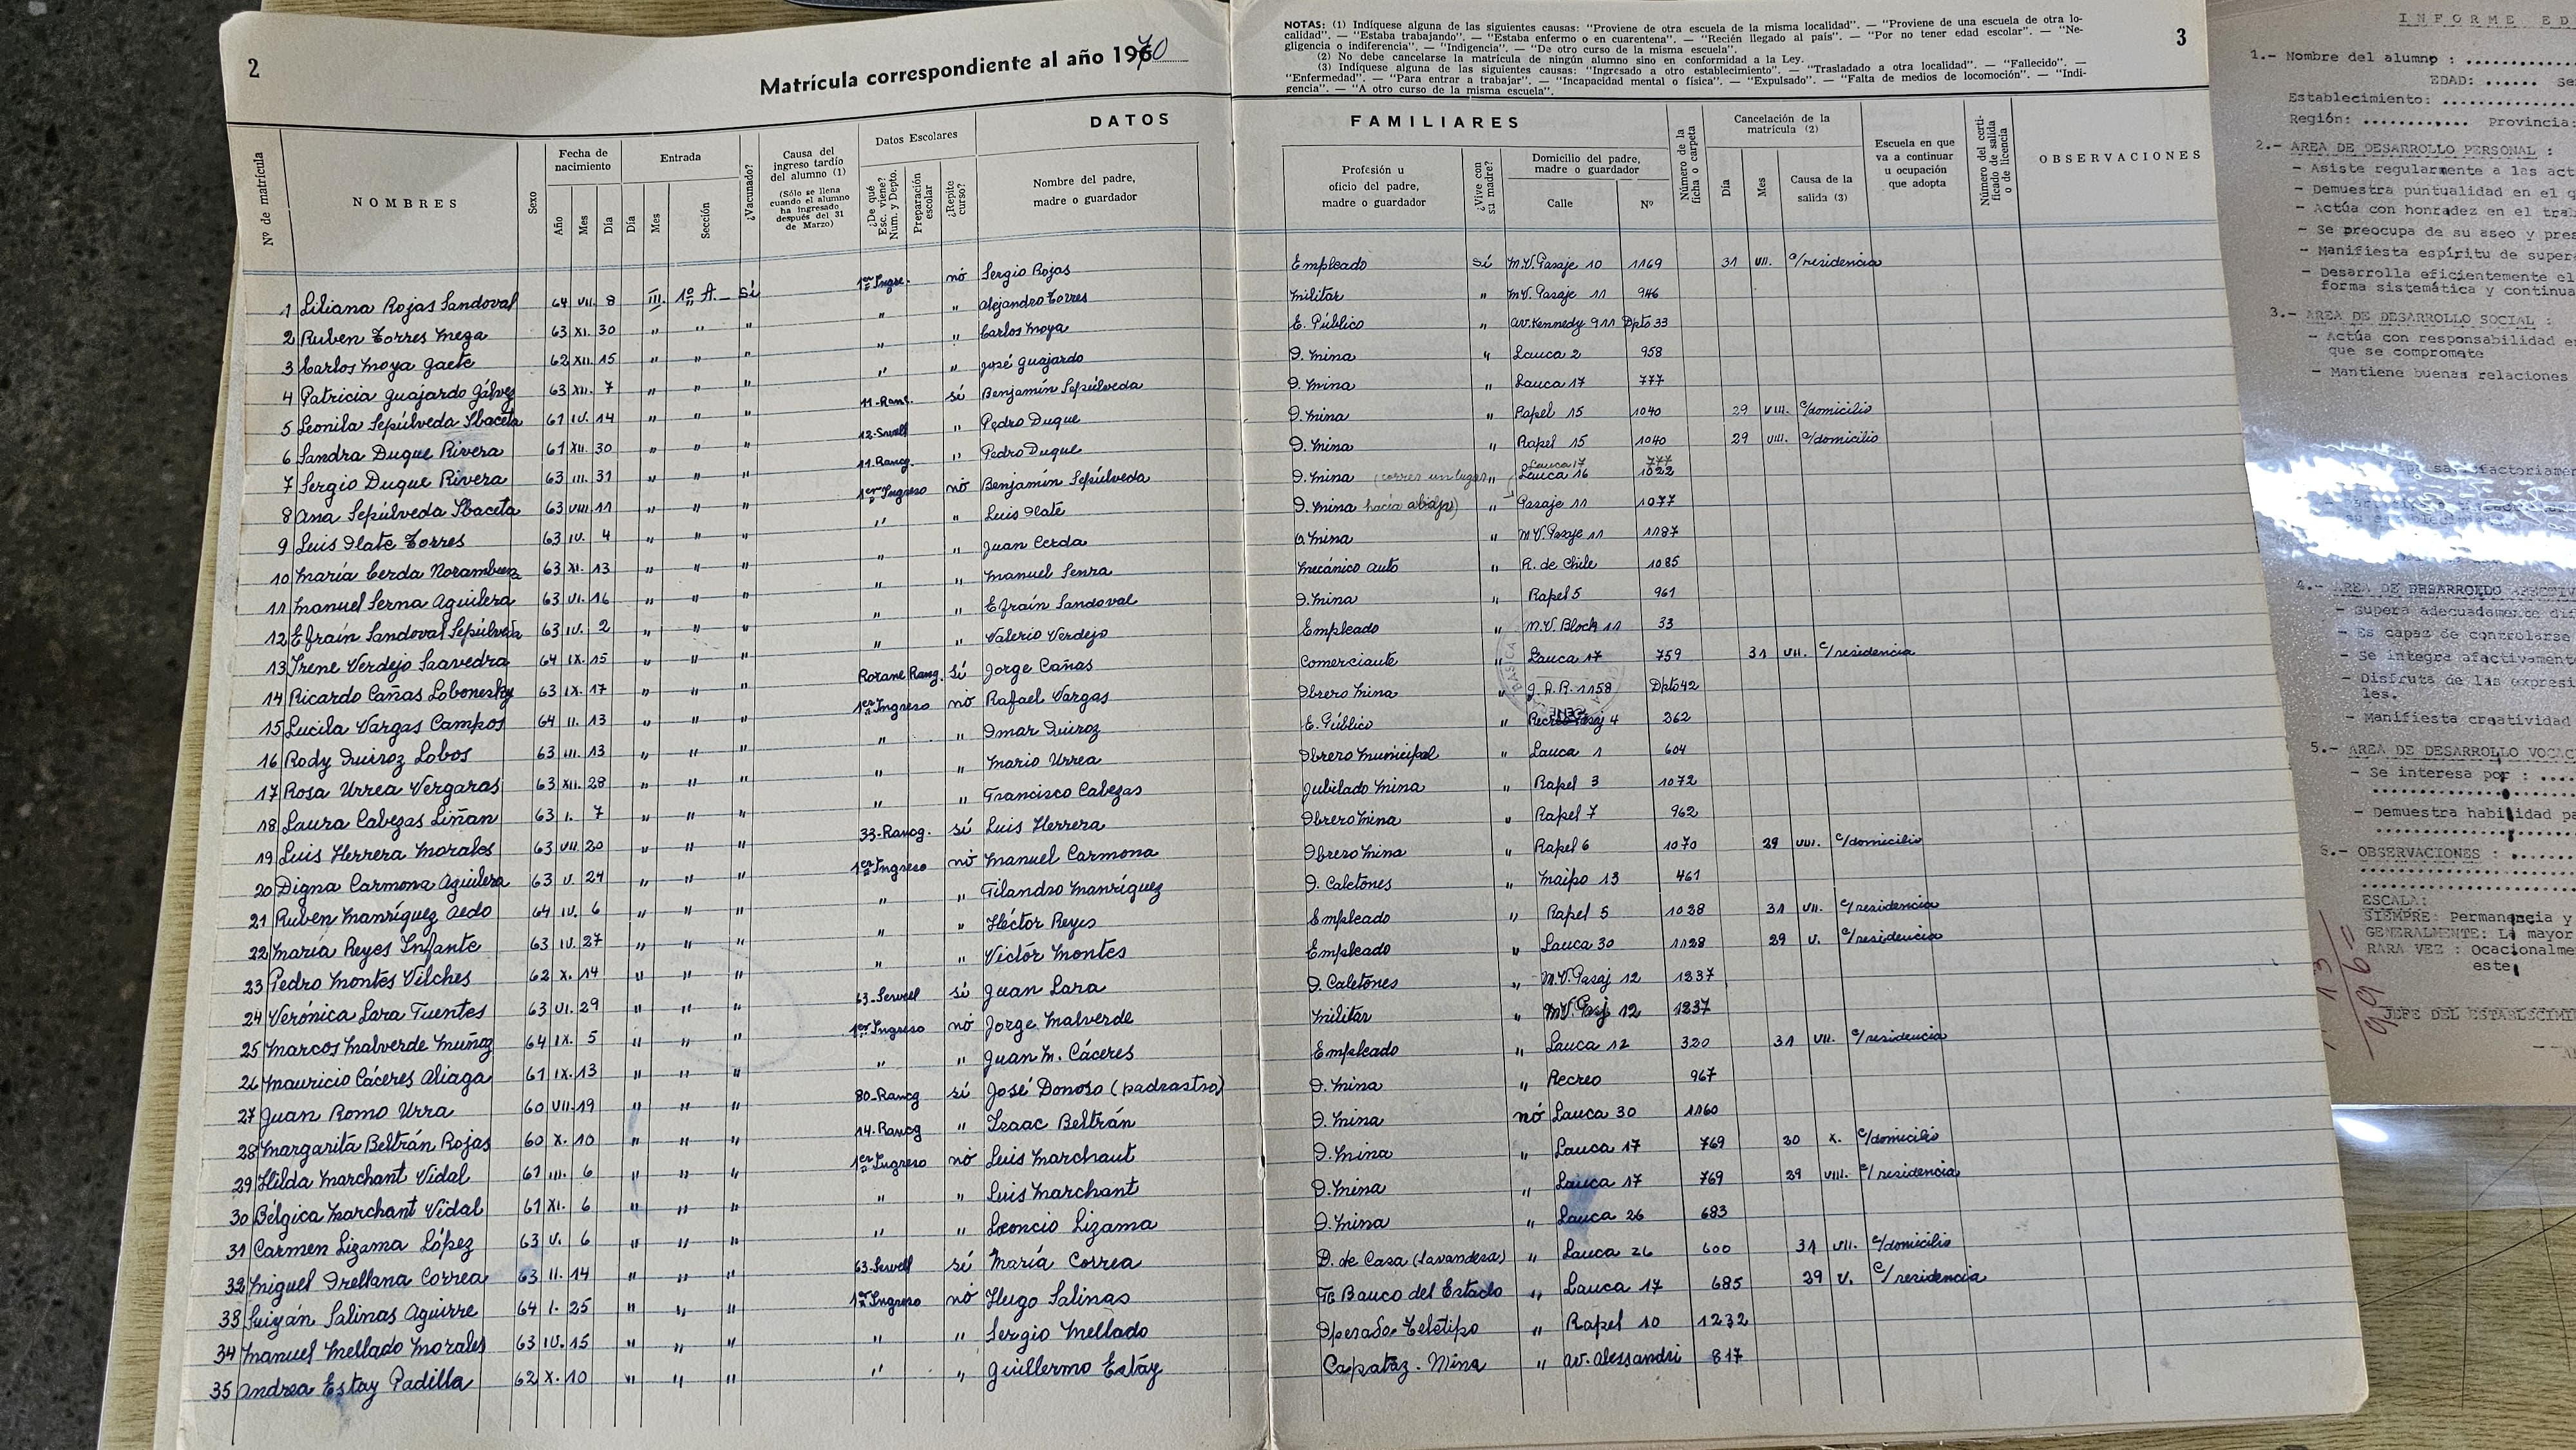 2
Matrícula correspondiente al año 1970
DATOS
Nº de matrícula
NOMBRES
Sexo
Fecha de nacimiento
Año
Mes
Día
Entrada
Día
Mes
Sección
¿Vacunado?
Causa del ingreso tardío del alumno (1)
(Sólo se llena cuando el alumno ha ingresado después del 31 de Marzo)
Datos Escolares
¿De qué Esc. viene? Num. y Depto.
Preparación escolar
¿Repite curso?
Nombre del padre, madre o guardador
1 Liliana Rojas Sandoval 64 VII. 8 III. 1º A. Sí 1er Ingre. nó Sergio Rojas
2 Ruben Torres Meza 63 XI. 30 " " " " " Alejandro Torres
3 Carlos Moya Gaete 62 XII. 15 " " " " " Carlos Moya
4 Patricia Guajardo Gálvez 63 XII. 7 " " " " " José Guajardo
5 Leonila Sepúlveda Sbaceta 61 IV. 14 " " " 11-Ranc. sí Benjamín Sepúlveda
6 Sandra Duque Rivera 61 XII. 30 " " " 12-Swell " Pedro Duque
7 Sergio Duque Rivera 63 III. 31 " " " 11-Rancg. " Pedro Duque
8 Ana Sepúlveda Sbaceta 63 VIII. 11 " " " 1er Ingreso nó Benjamín Sepúlveda
9 Luis Olate Torres 63 IV. 4 " " " " " Luis Olate
10 María Cerda Norambuena 63 XI. 13 " " " " " Juan Cerda
11 Manuel Serna Aguilera 63 VI. 16 " " " " " Manuel Senra
12 Efraín Sandoval Sepúlveda 63 IV. 2 " " " " " Efraín Sandoval
13 Irene Verdejo Saavedra 64 IX. 15 " " " " " Valerio Verdejo
14 Ricardo Cañas Lobonesky 63 IX. 17 " " " Rancg. sí Jorge Cañas
15 Lucila Vargas Campos 64 II. 13 " " " 1er Ingreso nó Rafael Vargas
16 Rody Quiroz Lobos 63 III. 13 " " " " " Omar Quiroz
17 Rosa Urrea Vergaras 63 XII. 28 " " " " " Mario Urrea
18 Laura Cabezas Liñan 63 I. 7 " " " " " Francisco Cabezas
19 Luis Herrera Morales 63 VII 20 " " " 33-Rancg. sí Luis Herrera
20 Digna Carmona Aguilera 63 V. 24 " " " 1er Ingreso nó Manuel Carmona
21 Ruben Manríguez Aedo 64 IV. 6 " " " " " Filandro Manríguez
22 María Reyes Infante 63 IV. 27 " " " " " Héctor Reyes
23 Pedro Montes Vilches 62 X. 14 " " " " " Victór Montes
24 Verónica Lara Fuentes 63 VI. 29 " " " 63-Sewell sí Juan Lara
25 Marcos Malverde Muñoz 64 IX. 5 " " " 1er Ingreso nó Jorge Malverde
26 Mauricio Cáceres Aliaga 61 IX. 13 " " " " " Juan M. Cáceres
27 Juan Romo Urra 60 VII. 19 " " " 80-Rancg sí José Donoso (padrastro)
28 Margarita Beltrán Rojas 60 X. 10 " " " 14-Rancg " Isaac Beltrán
29 Hilda Marchant Vidal 61 III. 6 " " " 1er Ingreso nó Luis Marchant
30 Bélgica Marchant Vidal 61 XI. 6 " " " " " Luis Marchant
31 Carmen Lizama López 63 V. 6 " " " " " Leoncio Lizama
32 Miguel Orellana Correa 63 II. 14 " " " 63-Sewell sí María Correa
33 Salinas Aguirre 64 I. 25 " " " 1er Ingreso nó Hugo Salinas
34 Manuel Mellado Morales 63 IV. 15 " " " " " Sergio Mellado
35 Andrea Estay Padilla 62 X. 10 " " " " " Guillermo Estáy
NOTAS: (1) Indíquese alguna de las siguientes causas: "Proviene de otra escuela de la misma localidad". — "Proviene de una escuela de otra lo-
calidad". — "Estaba trabajando". — "Estaba enfermo o en cuarentena". — "Recién llegado al país". — "Por no tener edad escolar". — "Ne-
gligencia o indiferencia". — "Indigencia". — "De otro curso de la misma escuela".
(2) No debe cancelarse la matrícula de ningún alumno sino en conformidad a la Ley.
(3) Indíquese alguna de las siguientes causas: "Ingresado a otro establecimiento". — "Trasladado a otra localidad". — "Fallecido". —
"Enfermedad". — "Para entrar a trabajar". — "Incapacidad mental o física". — "Expulsado". — "Falta de medios de locomoción". — "Indi-
gencia". — "A otro curso de la misma escuela".
3
FAMILIARES
Profesión u oficio del padre, madre o guardador
¿Vive con su madre?
Domicilio del padre, madre o guardador
Calle
Nº
Número de la ficha o carpeta
Cancelación de la matrícula (2)
Día
Mes
Causa de la salida (3)
Escuela en que va a continuar u ocupación que adopta
Número del certificado de salida o de licencia
OBSERVACIONES
Empleado sí M.V. Pasaje 10 1169 31 VII. c/residencia
Militar " M.V. Pasaje 11 946
E. Público " Av. Kennedy 911 Dpto 33
O. Mina " Lauca 2 958
O. Mina " Lauca 17 777
O. Mina " Rapel 15 1040 29 VIII. c/domicilio
O. Mina " Rapel 15 1040 29 VIII. c/domicilio
Lauca 17 777
O. Mina (correr un lugar " Lauca 16 1022
O. Mina hacia abajo) " Pasaje 11 1077
O. Mina " M.V. Pasaje 11 1187
Mecánico auto " R. de Chile 1085
O. Mina " Rapel 5 961
Empleado " M.V. Block 11 33
Comerciante " Lauca 17 759 31 VII. c/residencia
Obrero Mina " J.A.R. 1158 Dpto 42
E. Público " Recreo Pasaj 4 262
Obrero Municipal " Lauca 1 604
Jubilado Mina " Rapel 3 1072
Obrero Mina " Rapel 7 962
Obrero Mina " Rapel 6 1070 29 VIII. c/domicilio
O. Caletones " Maipo 13 461
Empleado " Rapel 5 1028 31 VII. c/residencia
Empleado " Lauca 30 1128 29 V. c/residencia
O. Caletones " M.V. Pasaj 12 1237
Militar " M.V. Pasaj 12 1237
Empleado " Lauca 12 320 31 VII. c/residencia
O. Mina " Recreo 967
O. Mina nó Lauca 30 1160
O. Mina " Lauca 17 769 30 X. c/domicilio
O. Mina " Lauca 17 769 29 VIII. c/residencia
O. Mina " Lauca 26 683
D. de Casa (lavandera) " Lauca 26 600 31 VII. c/domicilio
Banco del Estado " Lauca 17 685 29 V. c/residencia
Operador Teletipo " Rapel 10 1232
Capataz. Mina " Av. Alessandri 817
INFORME ED
1.- Nombre del alumno :
EDAD:
Establecimiento:
Región: Provincia:
2.- AREA DE DESARROLLO PERSONAL :
- Asiste regularmente a las act
- Demuestra puntualidad en el q
- Actúa con honradez en el tra
- Se preocupa de su aseo y pres
- Manifiesta espíritu de supera
- Desarrolla eficientemente el
forma sistemática y continua
3.- AREA DE DESARROLLO SOCIAL :
- Actúa con responsabilidad en
que se compromete
- Mantiene buenas relaciones
4.- AREA DE DESARROLLO AFECTIV
- Supera adecuadamente di
- Es capaz de controlarse
- Se integra afectivament
- Disfruta de las expresi
les.
- Manifiesta creatividad
5.- AREA DE DESARROLLO VOCAC
- Se interesa por :
- Demuestra habilidad pa
6.- OBSERVACIONES :
ESCALA:
SIEMPRE: Permanencia y
GENERALMENTE: La mayor
RARA VEZ : Ocacionalme
este
996=
JEFE DEL ESTABLECIMI